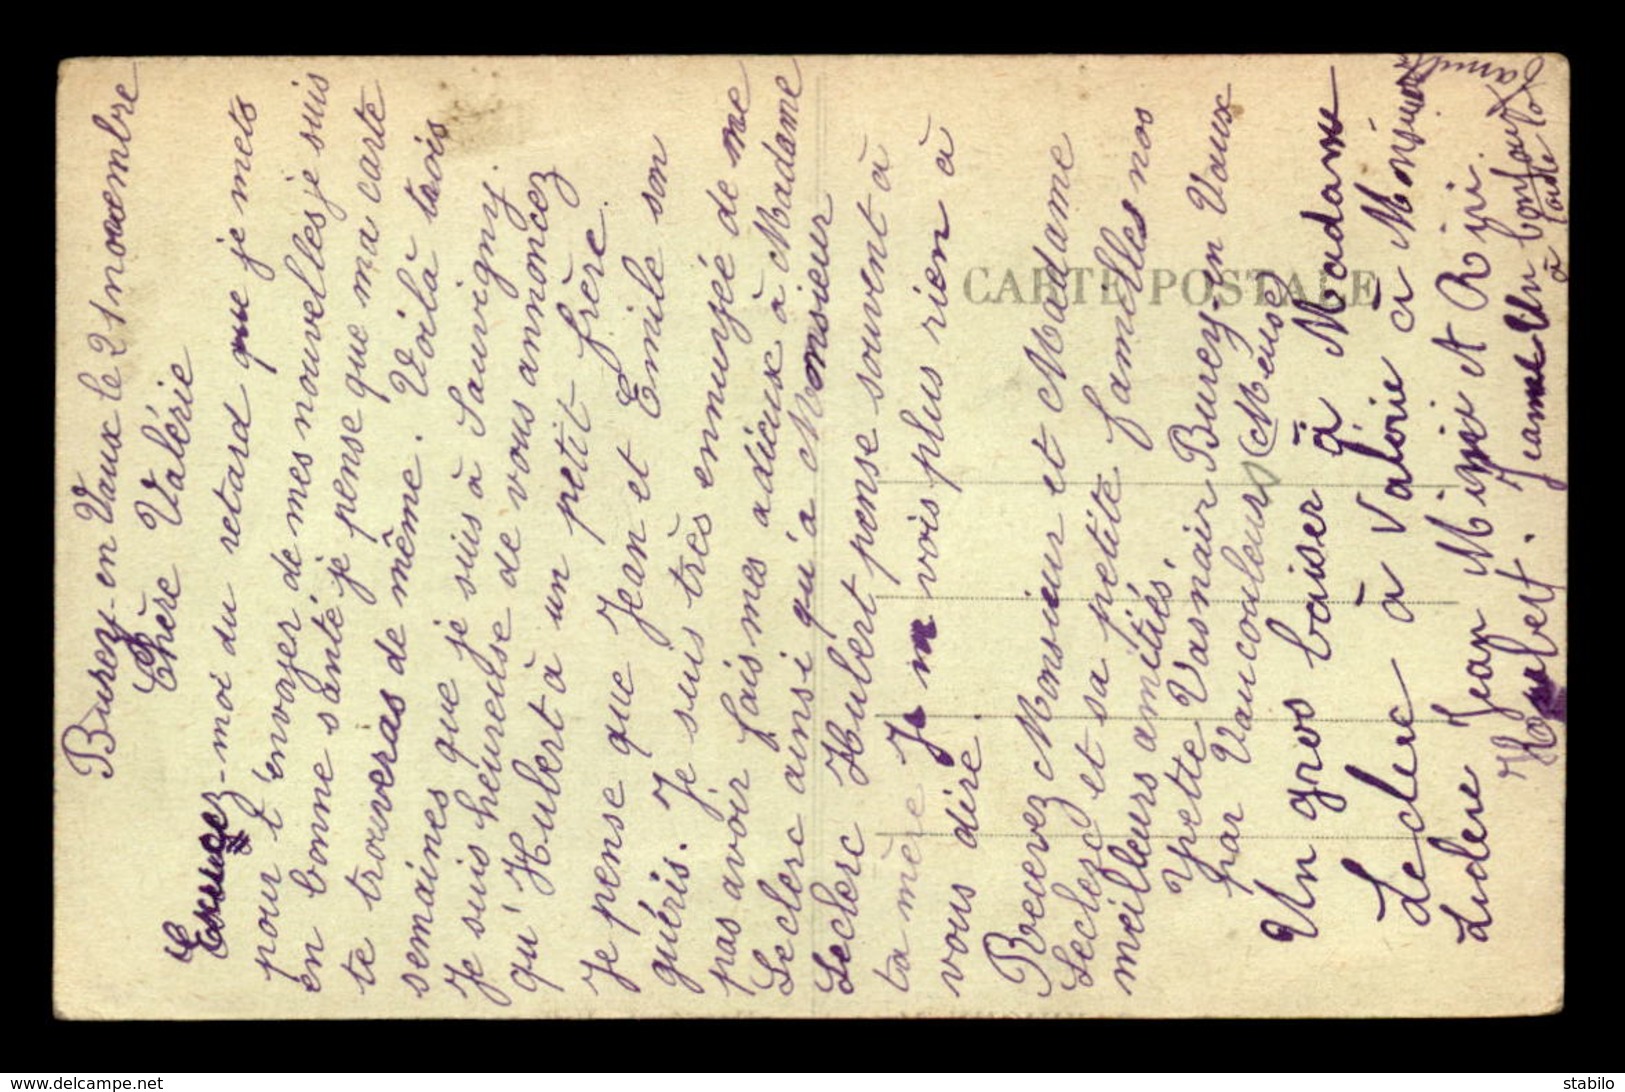 Burey en Vaux le 21 novembre
Chère Valérie
Excuse-moi du retard que je mets
pour t'envoyer de mes nouvelles je suis
en bonne santé je pense que ma carte
te trouveras de même. Voilà trois
semaines que je suis à Sauvigny.
Je suis heureuse de vous annoncez
qu' Hubert à un petit frère.
Je pense que Jean et Emile son
guéris. Je suis très ennuyée de me
pas avoir fais mes adieux à Madame
Leclerc ainsi qu'à Monsieur
Leclerc Hubert pense souvent à
ta mère Je vois plus rien à
vous dire.
Recevez Monsieur et Madame
Leclerc et sa petite familles nos
meilleurs amitiés.
Yvette Vasnair Burey-en Vaux
par Vaucouleurs (Meuse)
Un gros baiser à Madame
Leclerc à Valérie à Monsieur
Jean Mimi et Riri.
Hubert. Jeanne Un bonjour
à toute la famille
CARTE POSTALE
stabilo